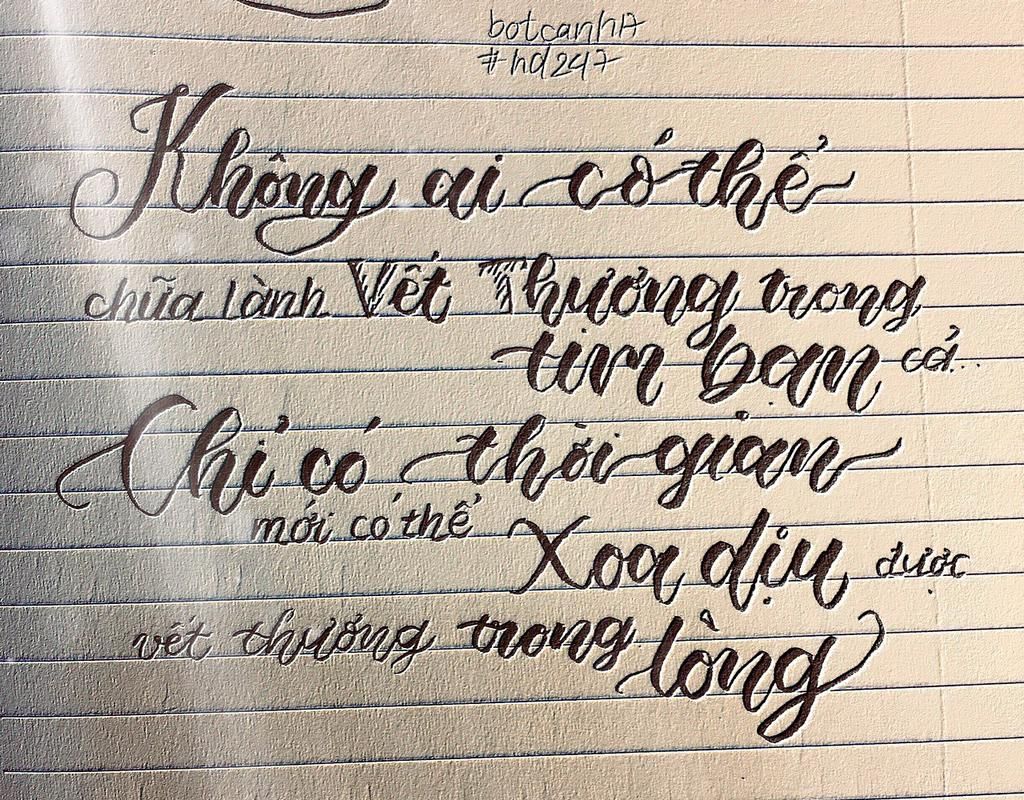 botcanhA
#hd247
Không ai có thể
chữa lành Vết Thương trong
tim bạn cả...
Chỉ có thời gian
mới có thể Xoa dịu được
vết thương trong lòng